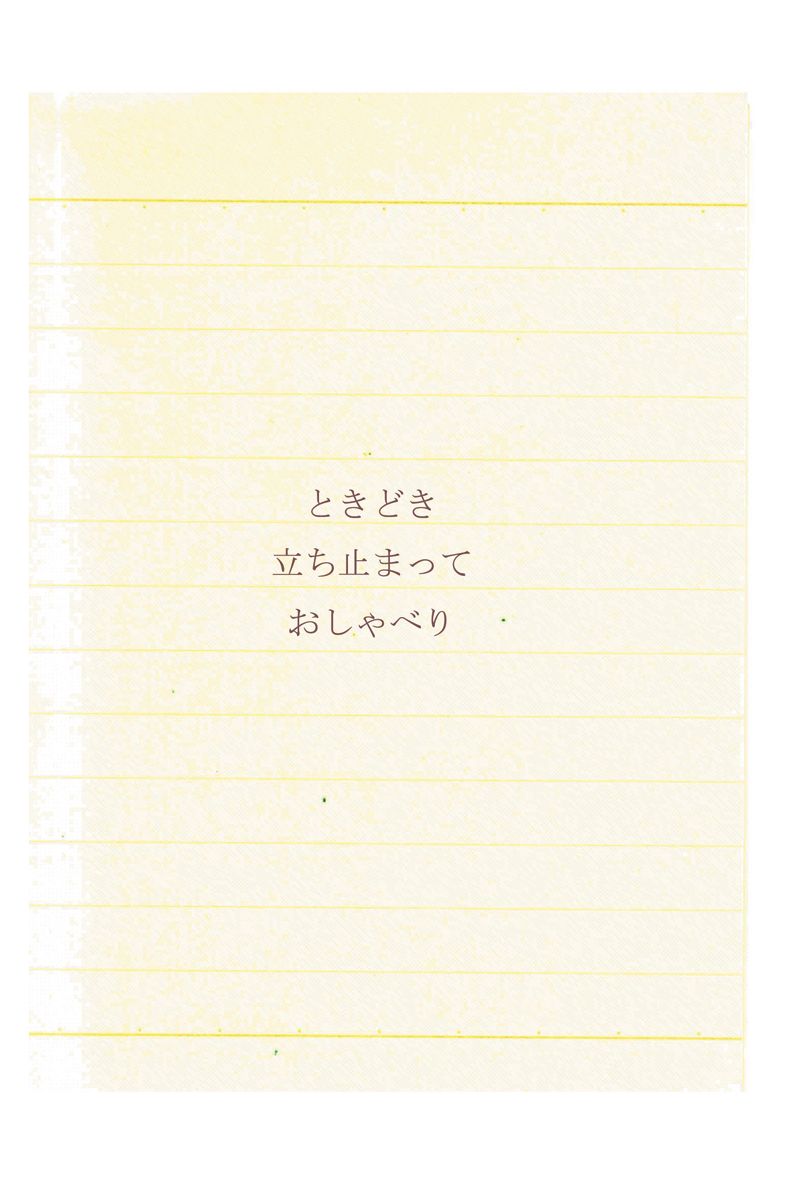 ときどき
立ち止まって
おしゃべり